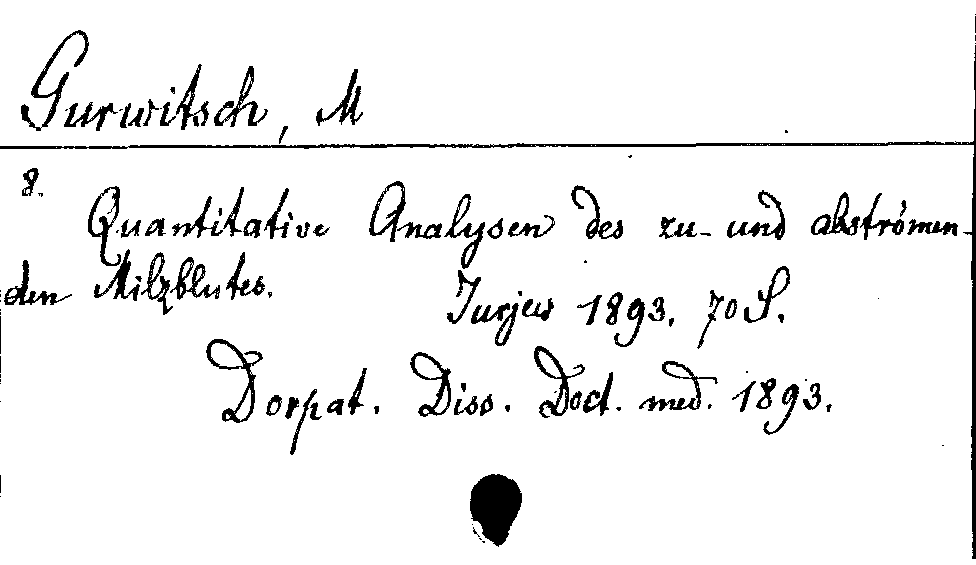 Gurwitsch, M
8.
Quantitative Analysen des zu- und abströmen-
den Milzblutes.
Jurjew 1893. 70 S.
Dorpat. Diss. Doct. med. 1893.